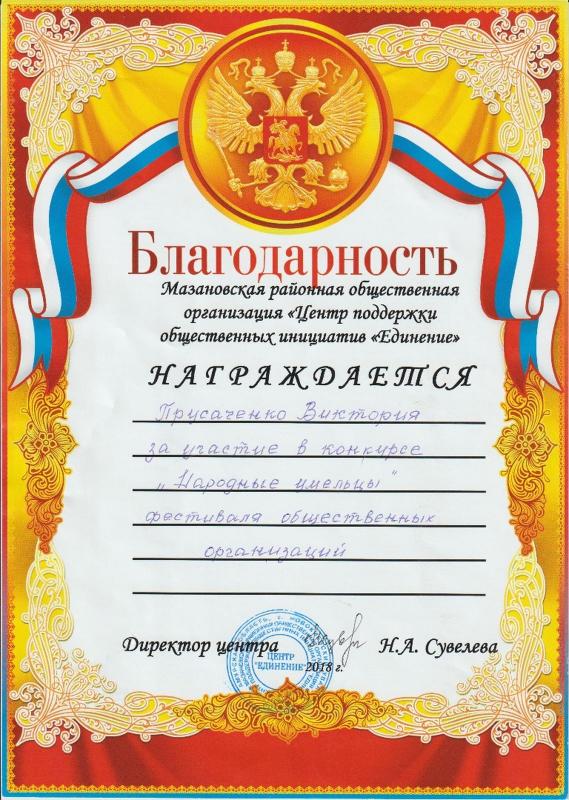 Благодарность
Мазановская районная общественная
организация «Центр поддержки
общественных инициатив «Единение»
НАГРАЖДАЕТСЯ
Прусаченко Виктория
за участие в конкурсе
„Народные умельцы"
фестиваля общественных
организаций
Директор центра
Н.А. Сувелева
2018 г.
ЦЕНТР
"ЕДИНЕНИЕ"